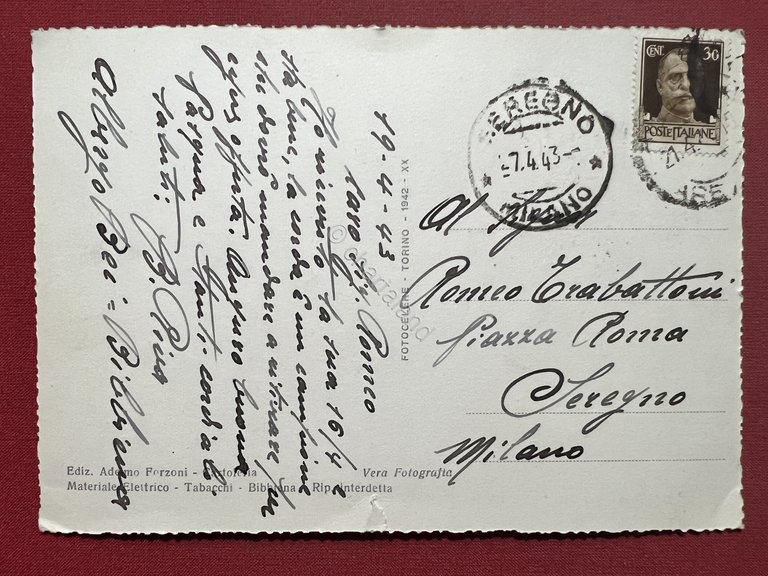 19-4-43
Caro Sig. Romeo
Ho ricevuto la sua 16/4 e
sta bene, la corda è un campione
che dovrò mandare a ritirare
offerta. Auguro buona
Pasqua e tanti cordiali
saluti. B. Piva
Albergo Bei = Bibbiena
FOTOCELERE - TORINO - 1942 - XX
© chartaland
Ediz. Adelmo Forzoni - Cartoleria
Materiale Elettrico - Tabacchi - Bibbiena - Rip. Interdetta
Vera Fotografia
SEREGNO
27.4.43
MILANO
CENT. 30
POSTE ITALIANE
Al Signor
Romeo Trabattoni
Piazza Roma
Seregno
Milano